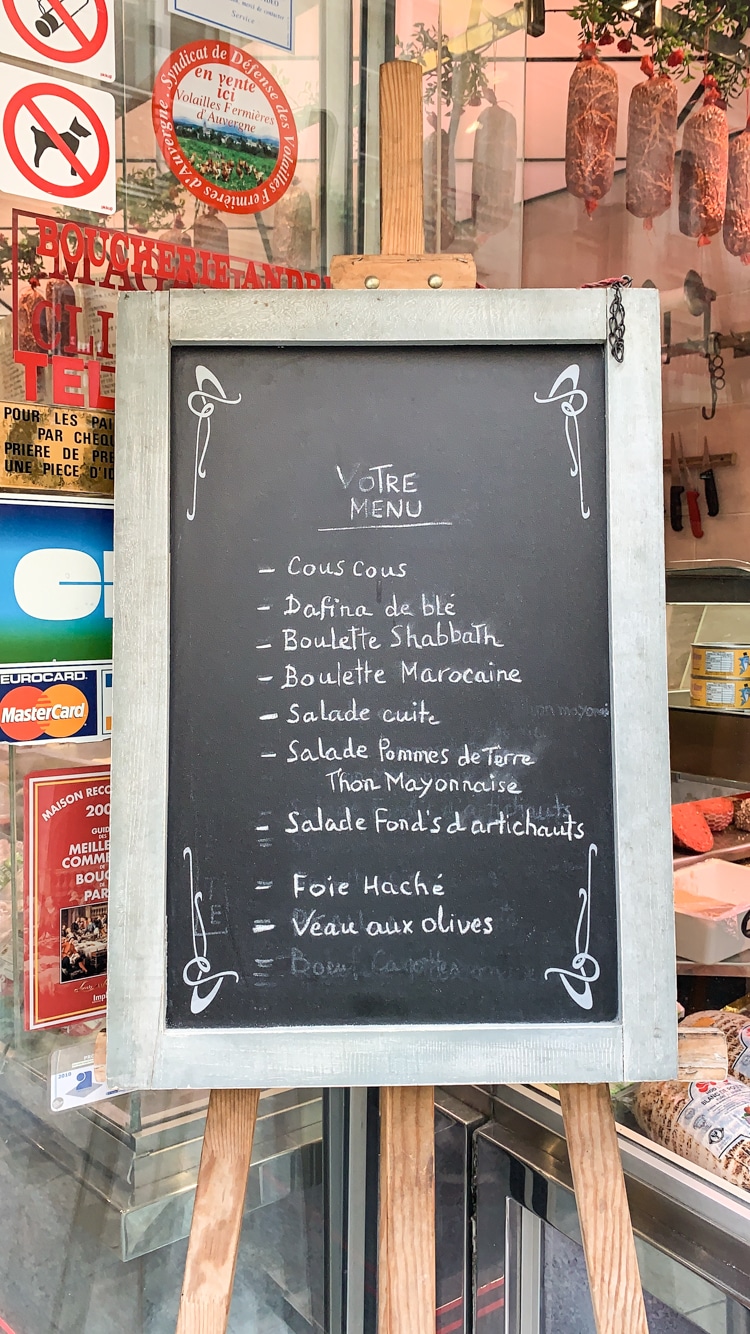 Service
Syndicat de Défense des Volailles Fermières d'Auvergne
en vente
ici
Volailles Fermières
d'Auvergne
BOUCHERIE ANDRE
CLI
TEL
POUR LES PAI
PAR CHEQU
PRIERE DE PRE
UNE PIECE D'ID
EUROCARD.
MasterCard
MAISON RECO
200
GUID
DES
MEILLE
COMME
DE
BOUC
DE
PAR
VOTRE
MENU
- Cous Cous
- Dafina de blé
- Boulette Shabbath
- Boulette Marocaine
- Salade cuite
- Salade Pommes de Terre
Thon Mayonnaise
- Salade Fond's d'artichauts
- Foie Haché
- Veau aux olives
Boeuf Carottes
BLANC DE